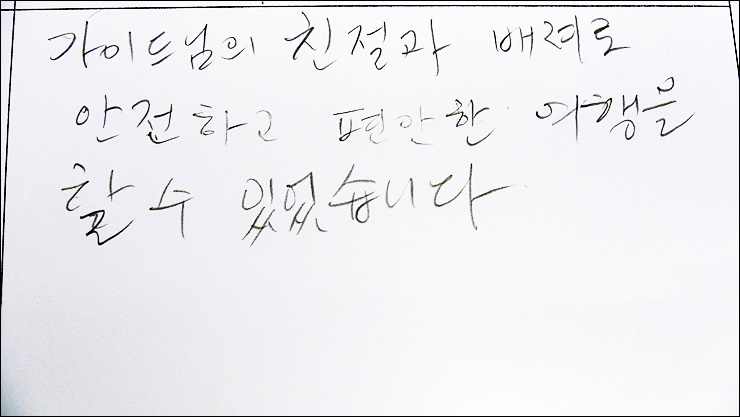 가이드님의 친절과 배려로
안전하고 편안한 여행을
할 수 있었습니다